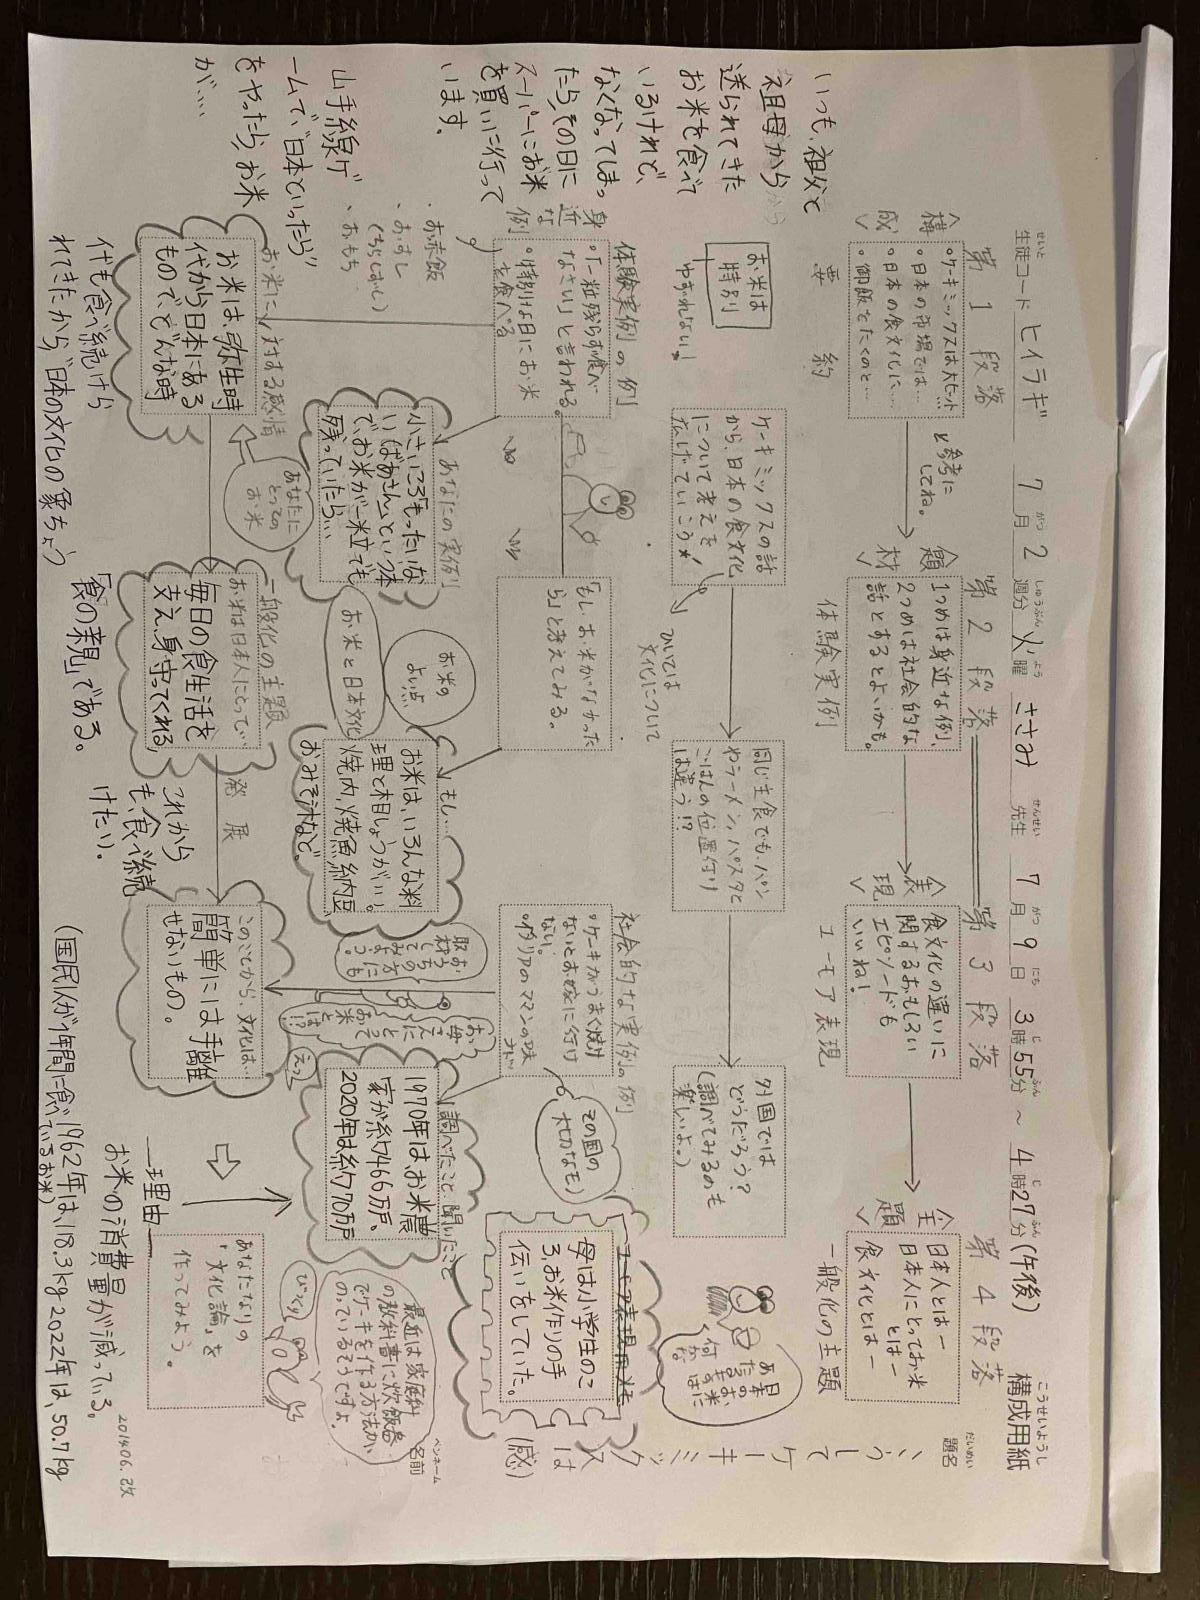 構成用紙
こうせいようし
生徒コード ヒイラギ 7月2週分 火曜 ささみ 先生 7月9日 3時55分 ~ 4時27分(午後)
せいと がつ しゅうぶん よう せんせい がつ にち じ ふん じ ふん
題名
だいめい
いらして
ケーキミックスは
(感)
ペンネーム
名前
第1段落
<構成>
・ケーキミックスは大ヒット…
・日本の市場では…
・日本の食文化に……
・御飯をたくのと…
と参考にしてね。
要約
第2段落
<題材>
1つめは身近な例、
2つめは社会的な
話とするとよいかも。
体験実例
第3段落
<表現>
食文化の違いに
関するおもしろい
エピソードも
いいね!
ユーモア表現
第4段落
<主題>
日本人とはー
日本人にとってお米
とはー
食文化とはー
一般化の主題
お米は
特別
ゆずれない!
ケーキミックスの話
から、日本の食文化
について考えを
広げていこう
ひいては
文化について
同じ主食でも、パン
やラーメン、パスタと
ごはんの位置付け
は違う!?
外国では
どうだろう?
(調べてみるのも
楽しいよ。)
日本のお米は
何かな
いつも、祖父と
祖母から
送られてきた
お米を食べて
いるけれど、
なくなってしまっ
たら、その日に
スーパーにお米
を買いに行って
います。
身近な例
体験実例の例
・「一粒残らず食べ
なさい」と言われる。
・特別な日にお米
を食べる
・お赤飯
・おすし
(ちらしずし)
・おもち
「もし、お米がなかった
ら」と考えてみる。
社会的な実例の例
・ケーキがうまく焼け
ないとお嫁に行け
ない。
・イタリアのママンの味
その国の
大切なモノ
ユーモア表現用メモ
母は小学生のこ
ろ、お米作りの手
伝いをしていた。
あなたの実例
小さいころ「もったいな
いばあさん」という本
で、お米が一粒でも
残っていたら…
お米の
よい点
お米と日本文化
もし…
お米は、いろんな料
理と相しょうがいい。
焼肉、焼魚、納豆、
おみそ汁など。
調べたこと、聞いたこと
1970年は、お米農
家が約466万戸、
2020年は約70万戸
えっ
最近は家庭科
の教科書に炊飯器
でケーキを作る方法が
のっているそうですよ。
びっくり
山手線ゲ
ームで、"日本といったら"
をやったら、お米
が……
お米に対する感情
お米は、弥生時
代から日本にある
もので、どんな時
代も食べ続けら
れてきたから、"日本の文化の象ちょう
あなたに
とっての
お米
一般化の主題
お米は日本人にとって…
毎日の食生活を
支え、身守ってくれる、
「食の親」である。
発展
これから
も、食べ続
けたい。
このことから、文化は…
簡単には手離
せないもの。
あなたなりの
「文化論」を
作ってみよう。
理由
お米の消費量が減っている。
(国民1人が1年間に食べているお米)
1962年は、118.3kg 2022年は、50.7kg
201406.改